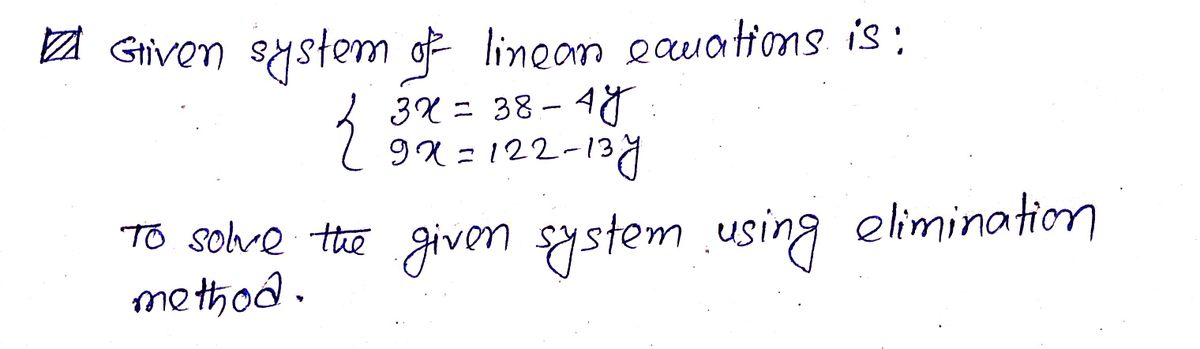 Given system of linear equations is:
3x = 38 - 4y
9x = 122 - 13y
To solve the given system using elimination
method.